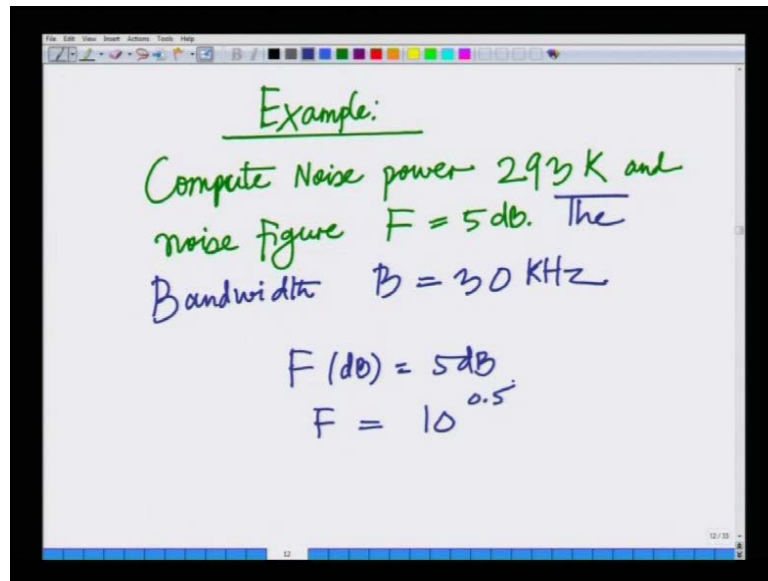 File Edit View Insert Actions Tools Help
Example:
Compute Noise power 293 K and
noise figure F = 5 dB. The
Bandwidth B = 30 KHz
F (dB) = 5 dB
F = 10^0.5
12/33
12